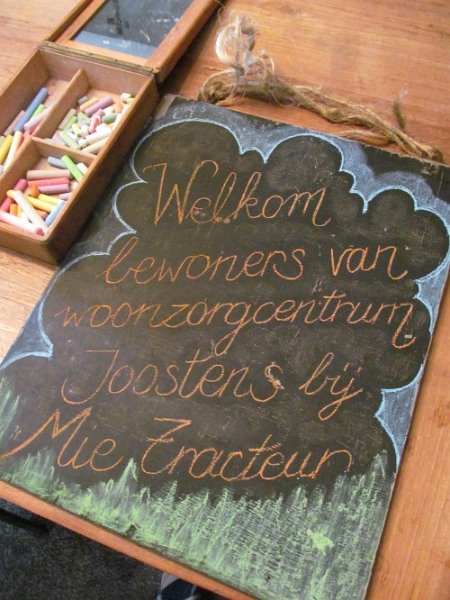 Welkom
bewoners van
woonzorgcentrum
Joostens bij
Mie Tracteur